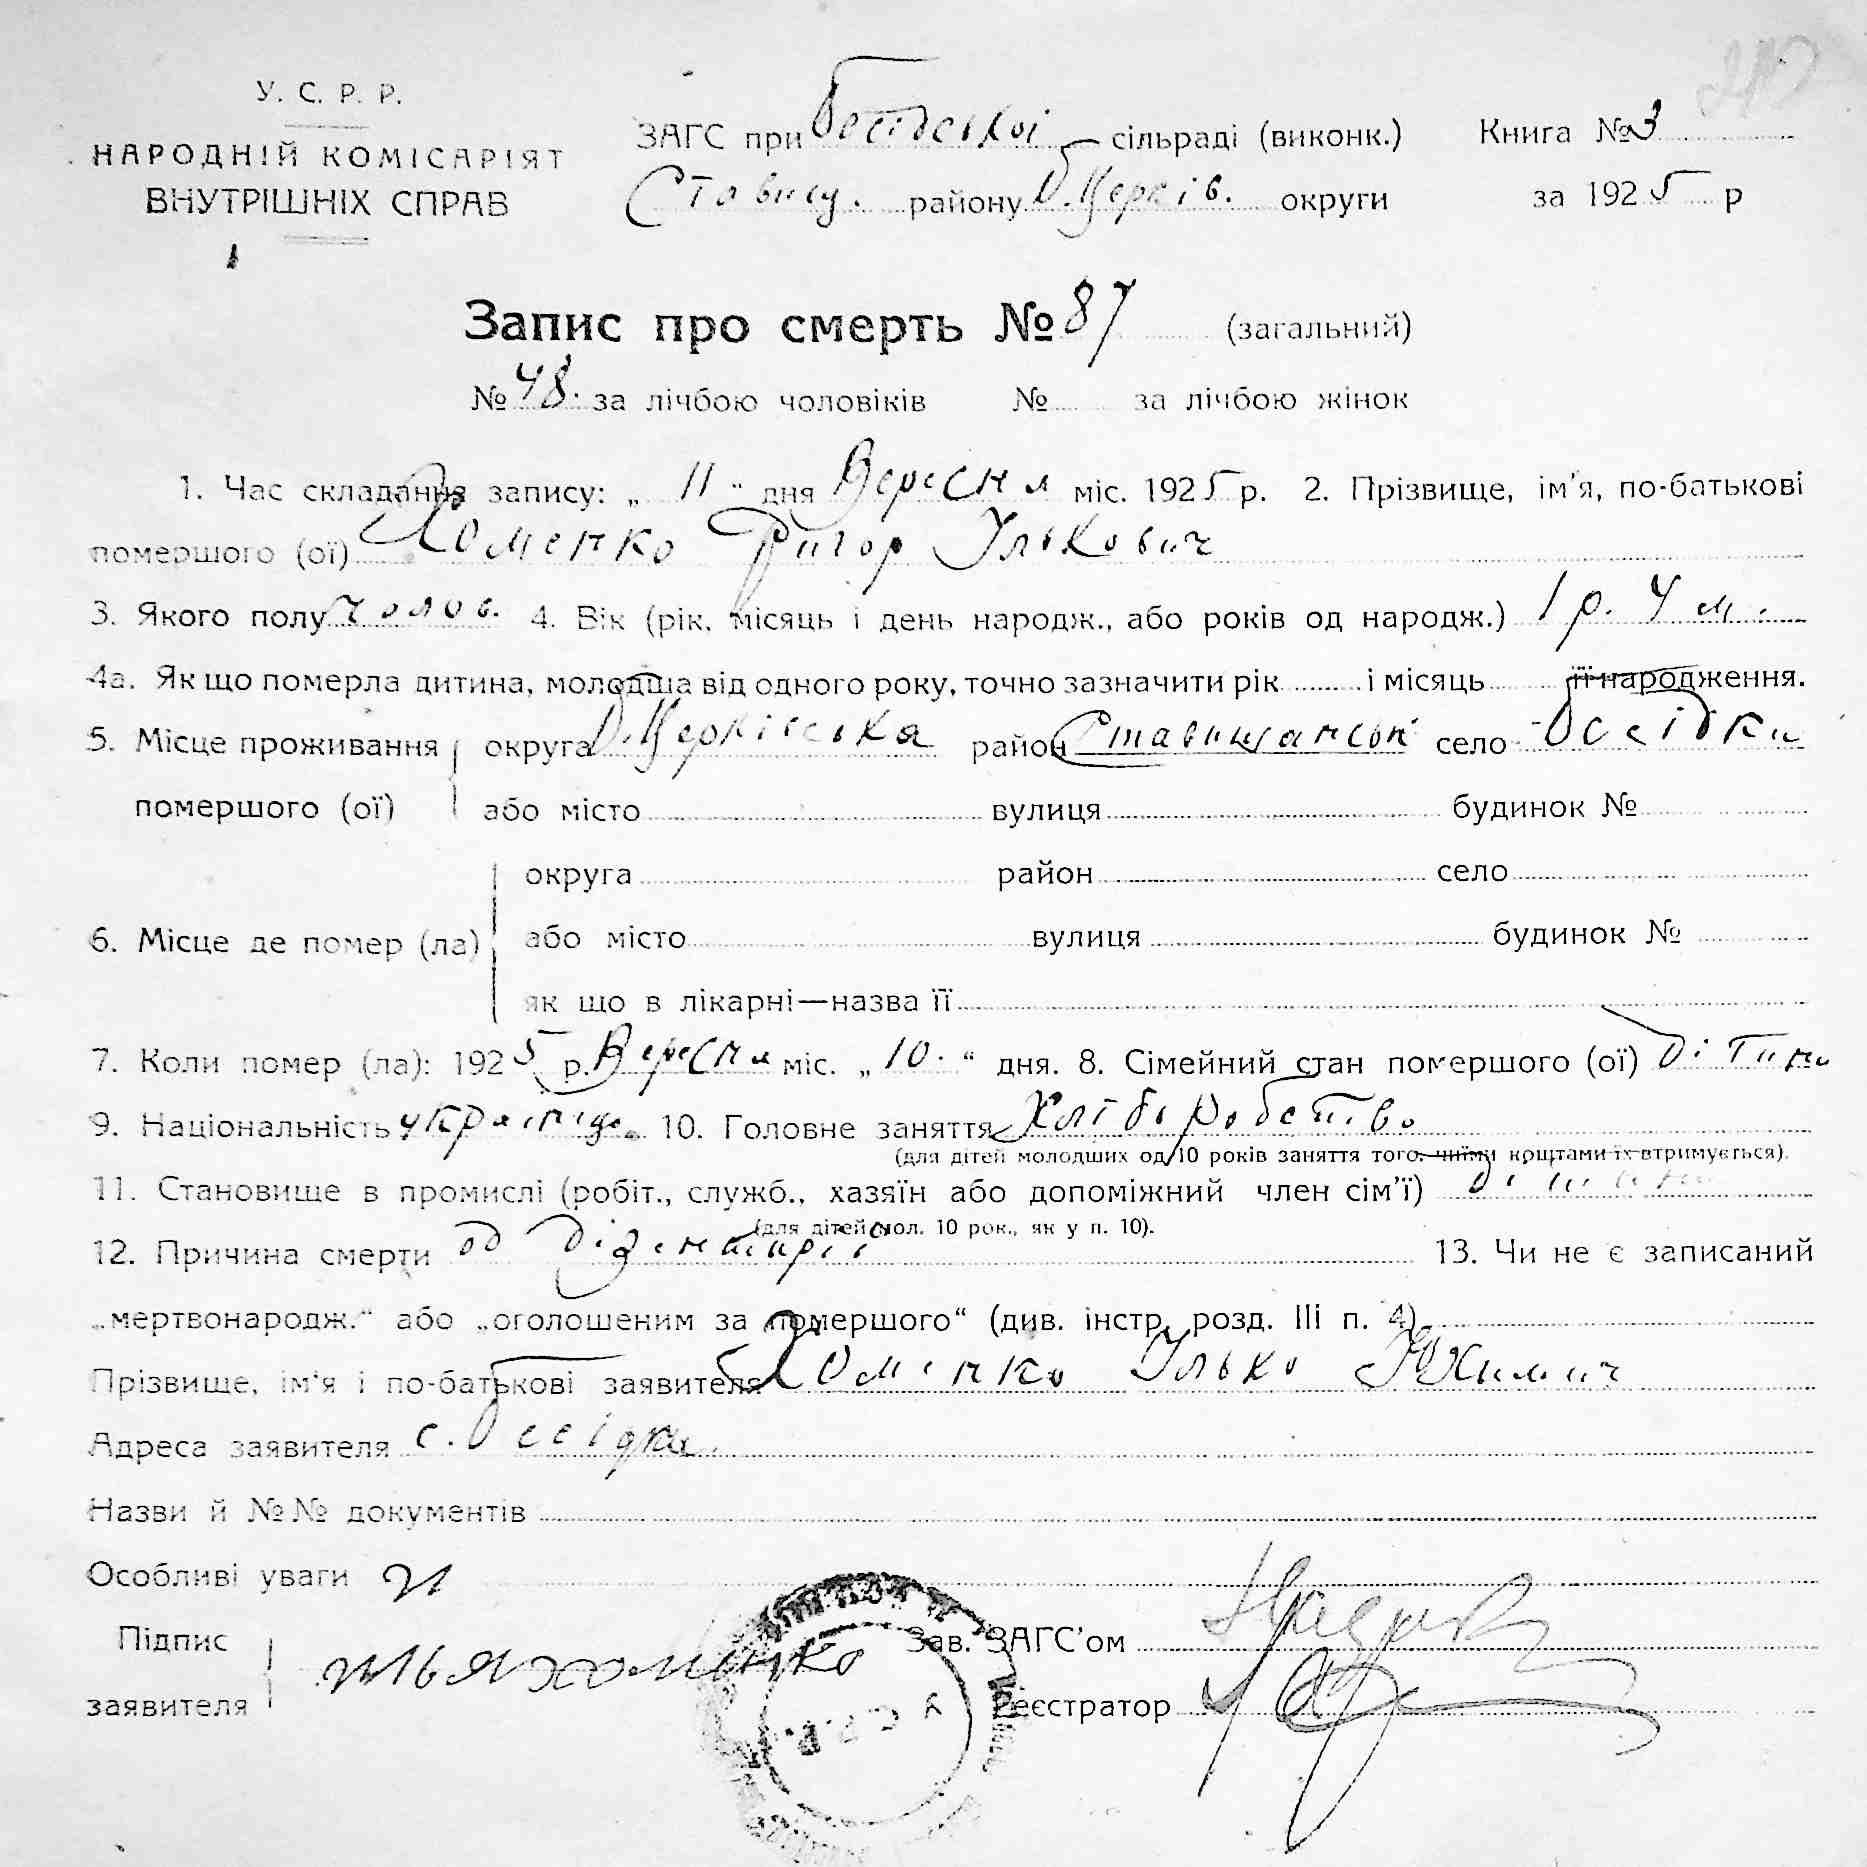 У. С. Р. Р.
НАРОДНІЙ КОМІСАРІЯТ
ВНУТРІШНІХ СПРАВ
ЗАГС при Бесідської сільраді (виконк.) Книга № 3
Ставищ. району Б.Церків. округи за 1925 р
Запис про смерть № 87 (загальний)
№ 48. за лічбою чоловіків № за лічбою жінок
1. Час складання запису: „ 11 “ дня Вересня міс. 1925 р. 2. Прізвище, ім'я, по-батькові
помершого (ої) Хоменко Григор Ількович
3. Якого полу чолов. 4. Вік (рік, місяць і день народж., або років од народж.) 1 р. 4 м.
4а. Як що померла дитина, молодша від одного року, точно зазначити рік і місяць її народження.
5. Місце проживання округа Б.Церківська район Ставищанськ село Бесідки
помершого (ої) або місто вулиця будинок №
округа район село
6. Місце де помер (ла) або місто вулиця будинок №
як що в лікарні—назва її
7. Коли помер (ла): 1925 р. Вересня міс. „ 10. “ дня. 8. Сімейний стан помершого (ої) дітина
9. Національність українець 10. Головне заняття Хліборобство
(для дітей молодших од 10 років заняття того, чиїми коштами їх втримується).
11. Становище в промислі (робіт., служб., хазяїн або допоміжний член сім'ї) дітина
(для дітей мол. 10 рок., як у п. 10).
12. Причина смерти од дізентирії 13. Чи не є записаний
„мертвонародж.“ або „оголошеним за помершого“ (див. інстр. розд. III п. 4)
Прізвище, ім'я і по-батькові заявителя Хоменко Ілько Юхимич
Адреса заявителя с. Бесідки.
Назви й №№ документів
Особливі уваги
Підпис
заявителя Илья хоменко
Зав. ЗАГС'ом
Реєстратор
У.С.Р.Р.